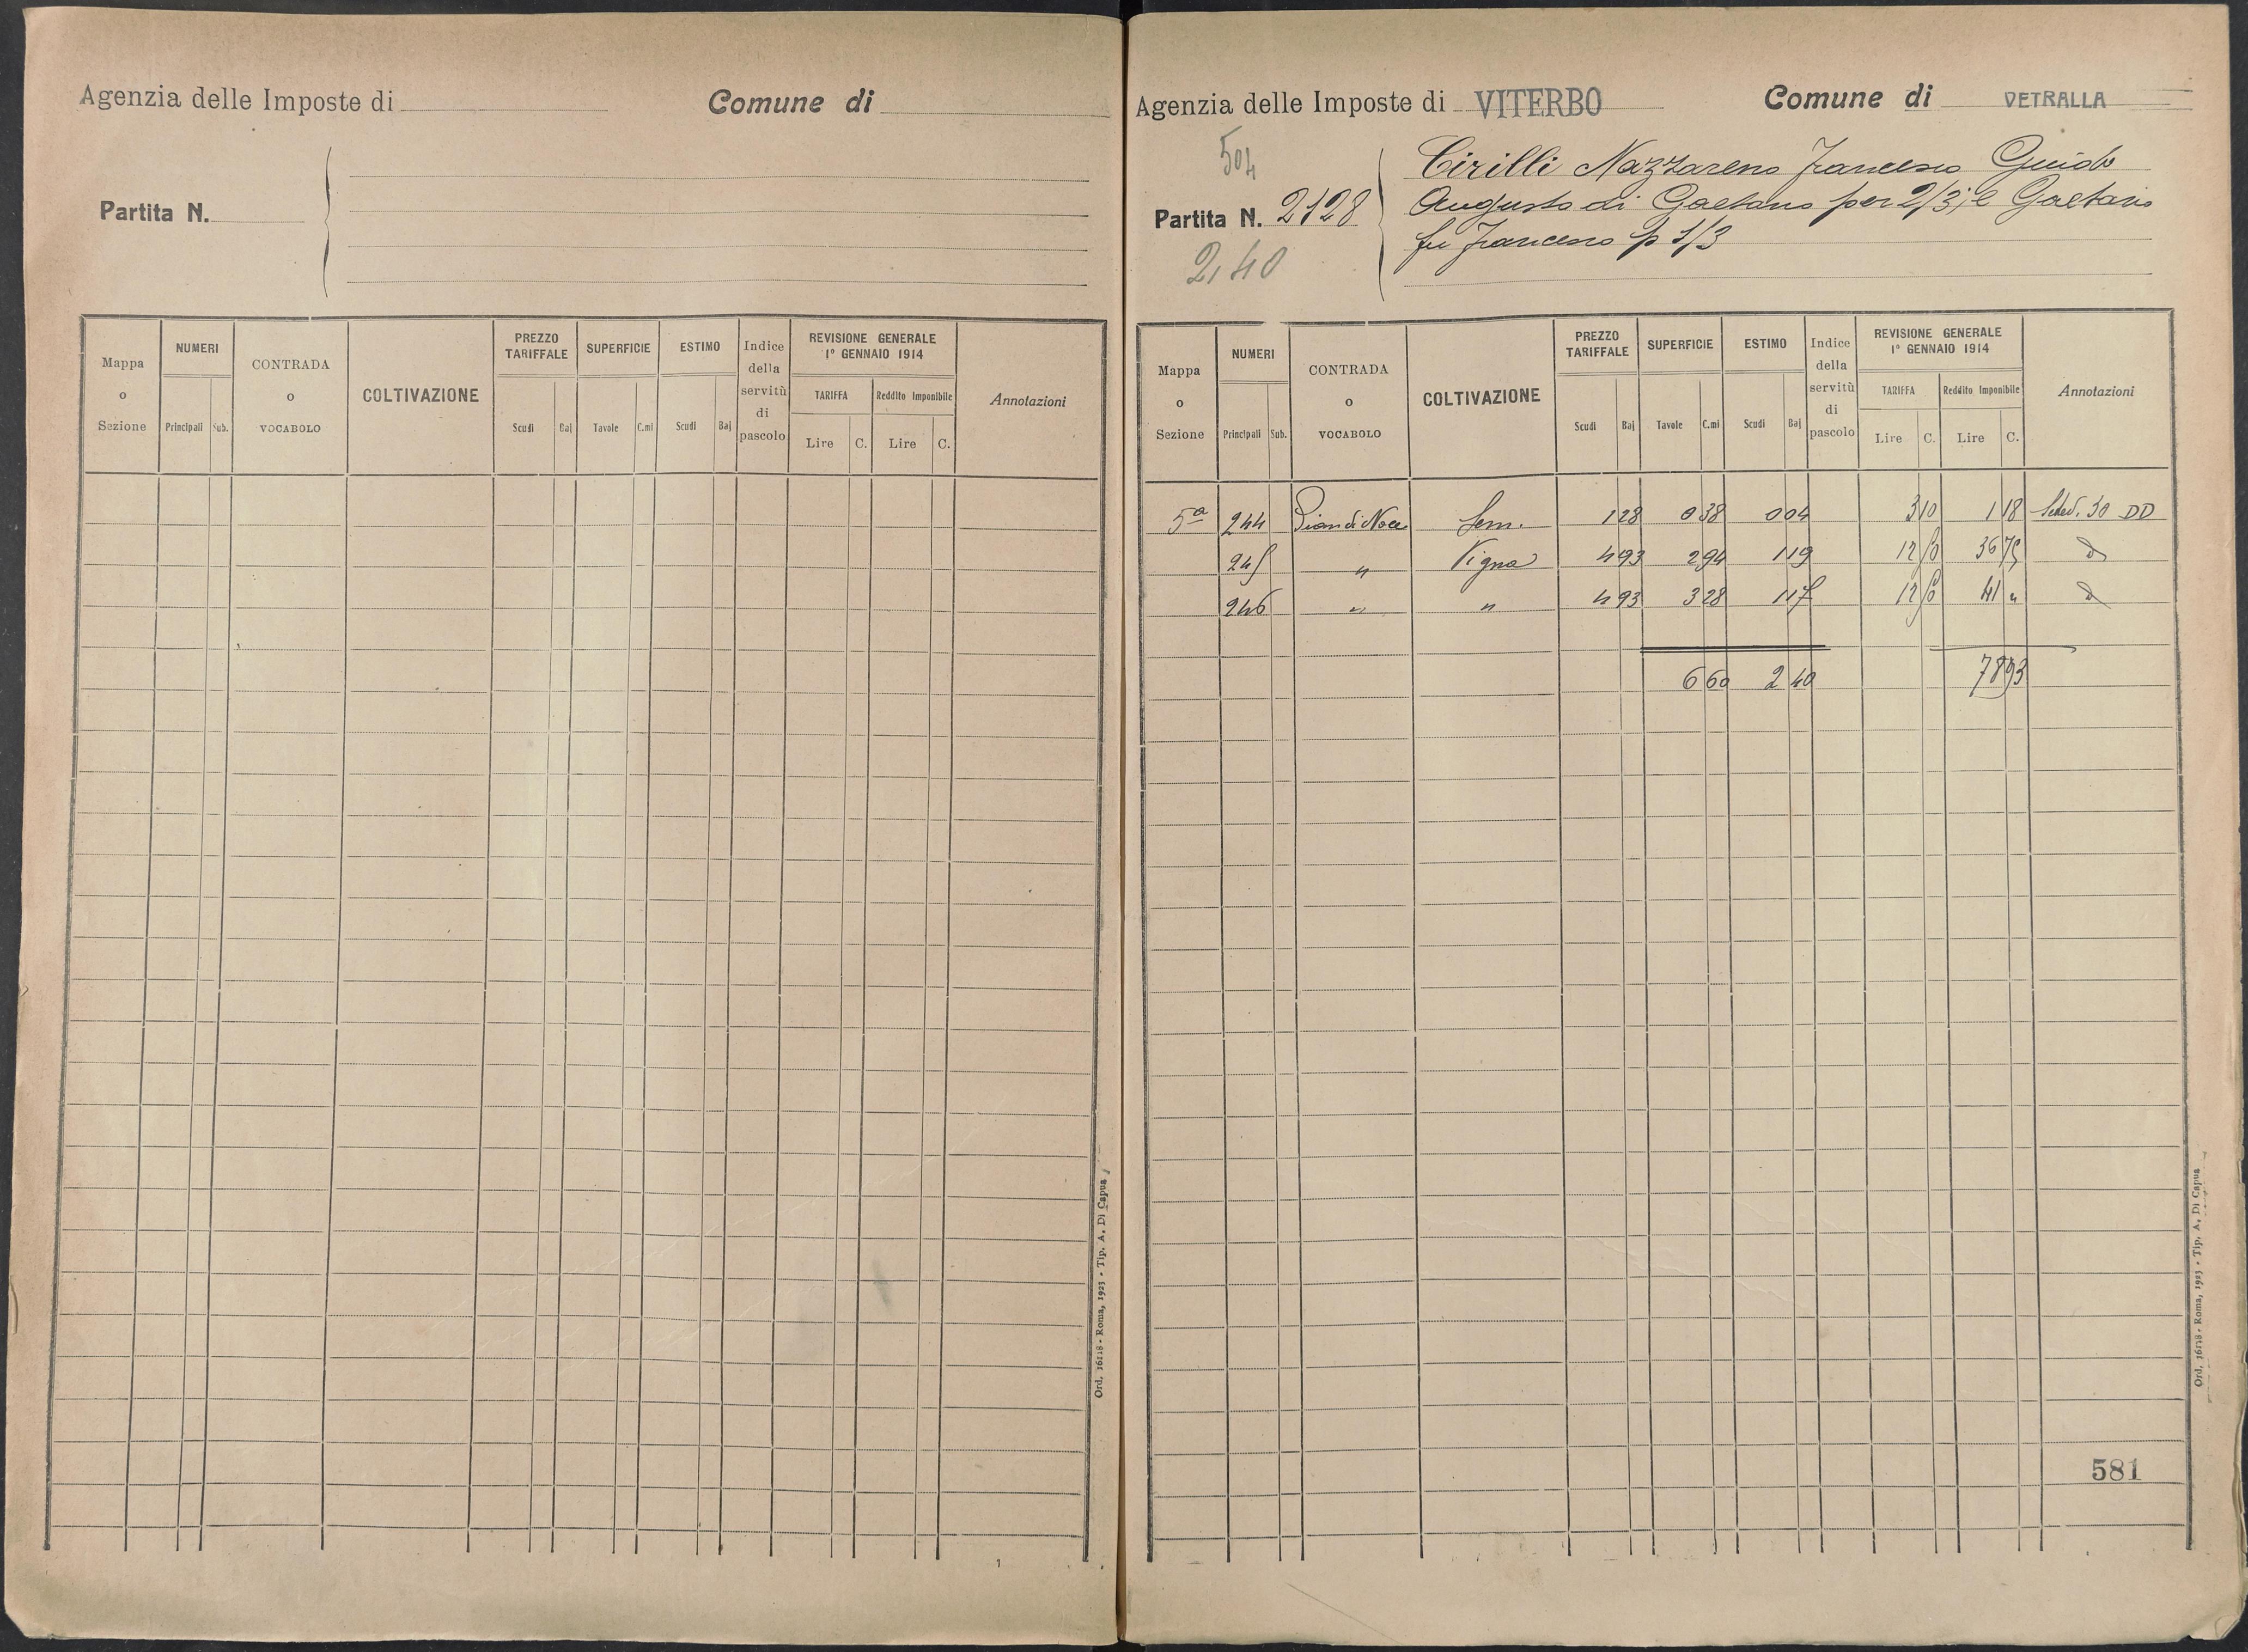 Agenzia delle Imposte di
Comune di
Partita N.
Mappa o Sezione
NUMERI
Principali
Sub.
CONTRADA o VOCABOLO
COLTIVAZIONE
PREZZO TARIFFALE
Scudi
Baj
SUPERFICIE
Tavole
C.mi
ESTIMO
Scudi
Baj
Indice della servitù di pascolo
REVISIONE GENERALE
1° GENNAIO 1914
TARIFFA
Lire
C.
Reddito Imponibile
Lire
C.
Annotazioni
Ord. 16118 - Roma, 1923 - Tip. A. Di Capua
1
Agenzia delle Imposte di VITERBO
Comune di VETRALLA
504
Partita N. 2128
2,40
Cirilli Nazzareno Francesco Guido
Augusto di Gaetano per 2/3; e Gaetano
fu Francesco p 1/3
Mappa o Sezione
NUMERI
Principali
Sub.
CONTRADA o VOCABOLO
COLTIVAZIONE
PREZZO TARIFFALE
Scudi
Baj
SUPERFICIE
Tavole
C.mi
ESTIMO
Scudi
Baj
Indice della servitù di pascolo
REVISIONE GENERALE
1° GENNAIO 1914
TARIFFA
Lire
C.
Reddito Imponibile
Lire
C.
Annotazioni
5a 244 Pian di Noce Sem. 1 28 0 38 0 04 3 10 1 18 Sched. 30 DD
245 " Vigna 4 93 2 94 1 19 12 50 36 75
246 " " 4 93 3 28 1 17 12 50 41 "
6 60 2 40 78 93
581
Ord. 16118 - Roma, 1923 - Tip. A. Di Capua